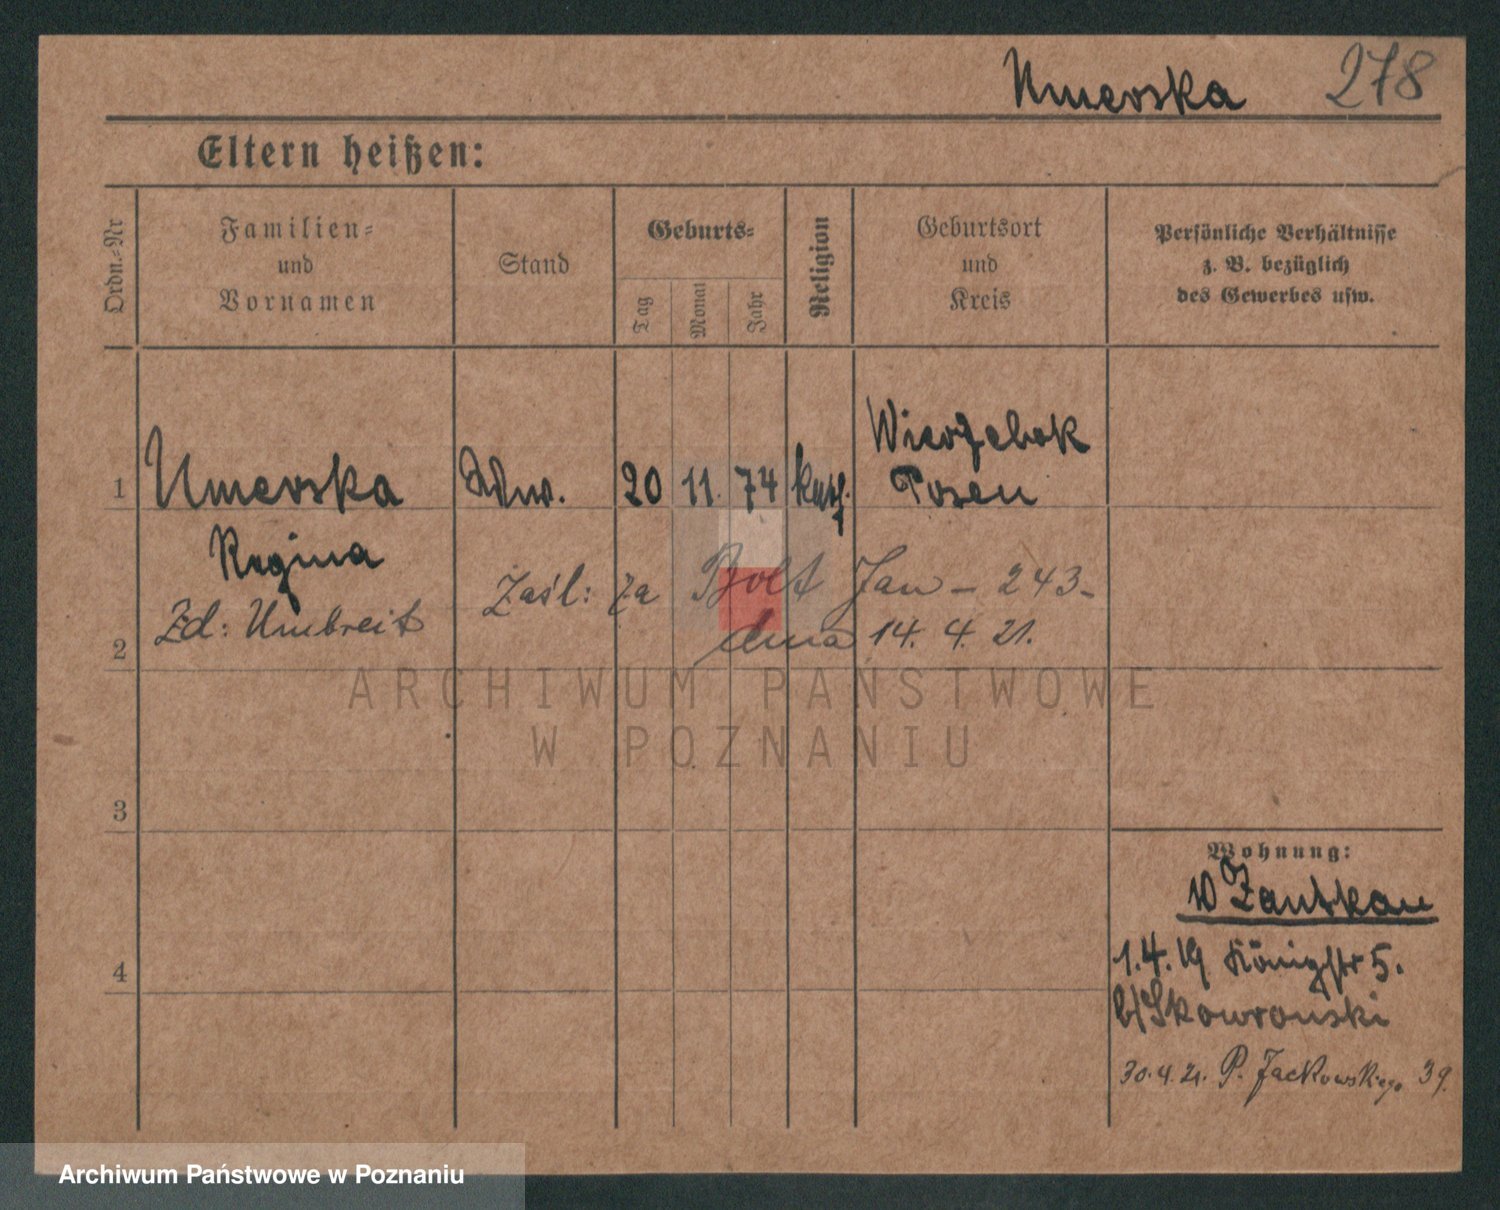 Umerska 278
Eltern heißen:
Ordn.-Nr
Familien-
und
Vornamen
Stand
Geburts-
Tag
Monat
Jahr
Religion
Geburtsort
und
Kreis
Persönliche Verhältnisse
z. B. bezüglich
des Gewerbes usw.
1 Umerska Wwe. 20 11. 74 kath. Wierzebok
Posen
Regina
Zaśl: za Bolt Jan - 243-
2 Zd: Umbreit dnia 14. 4. 21.
ARCHIWUM PAŃSTWOWE
W POZNANIU
3
Wohnung:
W Zantkau
4
1.4.19 Königstr 5.
b/Skowronski
30.4.21. P. Jackowskiego 39.
Archiwum Państwowe w Poznaniu